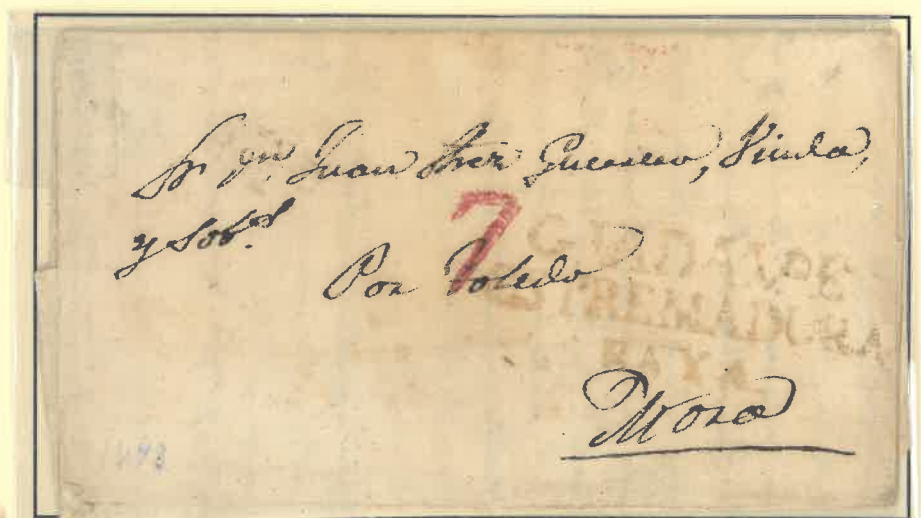 Sr. Dn. Juan Frez Guerrero, Viuda,
y Sob.s
7
Por Toledo
ESTREMADURA
BAYA
Mora